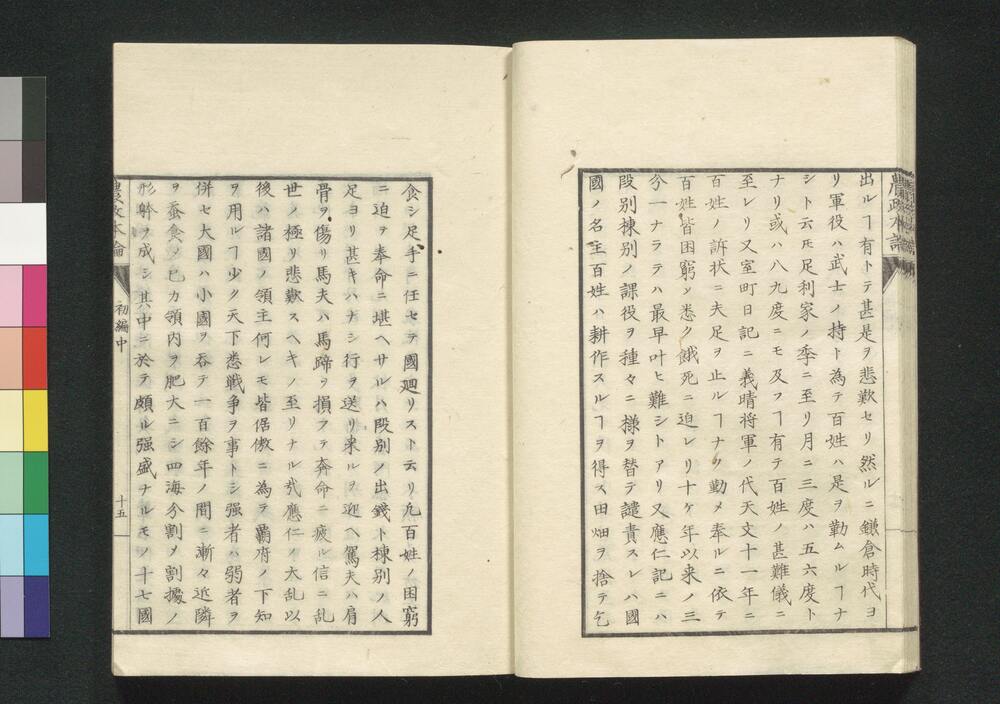 農政本論
出ルヿ有トテ甚是ヲ悲歎セリ然ルニ鎌倉時代ヨ
リ軍役ハ武士ノ持ト為テ百姓ハ是ヲ勤ムルヿナ
シト云𪜈足利家ノ季ニ至リ月ニ三度ハ五六度ト
ナリ或ハ八九度ニモ及フヿ有テ百姓ノ甚難儀ニ
至レリ又室町日記ニ義晴将軍ノ代天文十一年ニ
百姓ノ訴状ニ夫足ヲ止ルヿナク勤メ奉ルニ依テ
百姓皆困窮シ悉ク餓死ニ迫レリ十ケ年以来ノ三
分一ナラテハ最早叶ヒ難シトアリ又應仁記ニハ
段別棟別ノ課役ヲ種々ニ様ヲ替テ譴責スレハ國
國ノ名主百姓ハ耕作スルヿヲ得ス田畑ヲ捨テ乞
食シ足手ニ任セテ國廻リスト云リ凢百姓ノ困窮
ニ迫テ奉命ニ堪ヘサルハ段別ノ出錢ト棟別ノ人
足ヨリ甚キハナシ行ヲ送リ来ルヲ迎ヘ駕夫ハ肩
骨ヲ傷リ馬夫ハ馬蹄ヲ損フテ奔命ニ疲ル信ニ乱
世ノ極リ悲歎スヘキノ至リナル哉應仁ノ大乱以
後ハ諸國ノ領主何レモ皆倨傲ニ為テ覇府ノ下知
ヲ用ルヿ少ク天下悉戦争ヲ事トシ强者ハ弱者ヲ
併セ大國ハ小國ヲ呑テ一百餘年ノ間ニ漸々近隣
ヲ蚕食シ已カ領内ヲ肥大ニシ四海分割メ割據ノ
形勢ヲ成シ其中ニ於テ頗ル强盛ナルモノ十七國
農政本論
初編中
十五